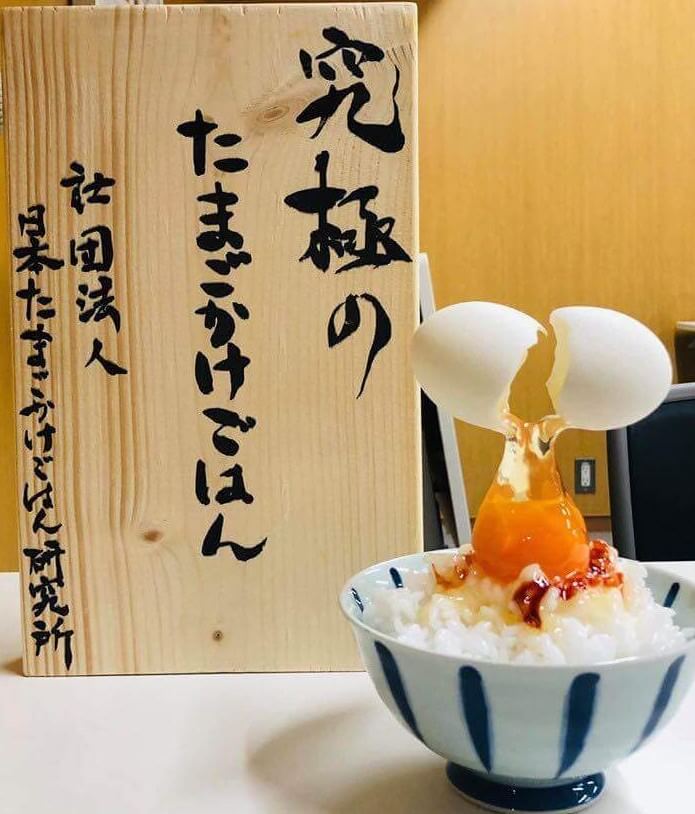 究極の
たまごかけごはん
社団法人
日本たまごかけごはん研究所